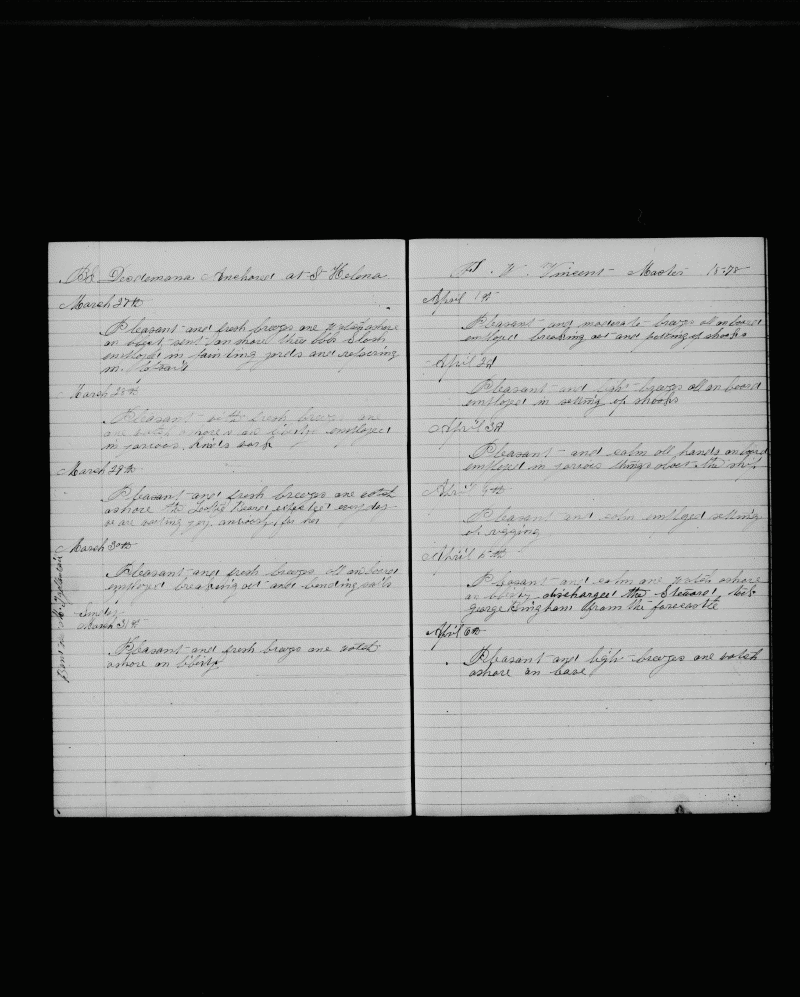 Bk Desdemona Anchored at St Helena
March 27th
Pleasant and fresh breezes one watch ashore
on sent on shore three bbls Slush
employed in yards and
in
March 28th
Pleasant with fresh breezes one
one watch ashore on liberty employed
in work
March 29th
Pleasant and fresh breezes one watch
ashore the expected every day
we are waiting for her
March 30th
Pleasant and fresh breezes all on board
employed breaking out and bending sails
Sunday
March 31st
Pleasant and fresh breezes one watch
ashore on liberty
W. Vincent Master 1878
April 1st
Pleasant and moderate breezes all on board
employed breaking out and setting up shooks
April 2d
Pleasant and light breezes all on board
employed in setting up shooks
April 3d
Pleasant and calm all hands on board
employed in various things about the ship
April 4th
Pleasant and calm employed setting
up rigging
April 5th
Pleasant and calm one watch ashore
on liberty discharged the Steward, took
george Bingham from the forecastle
April 6th
Pleasant and ligh breezes one watch
ashore on leave